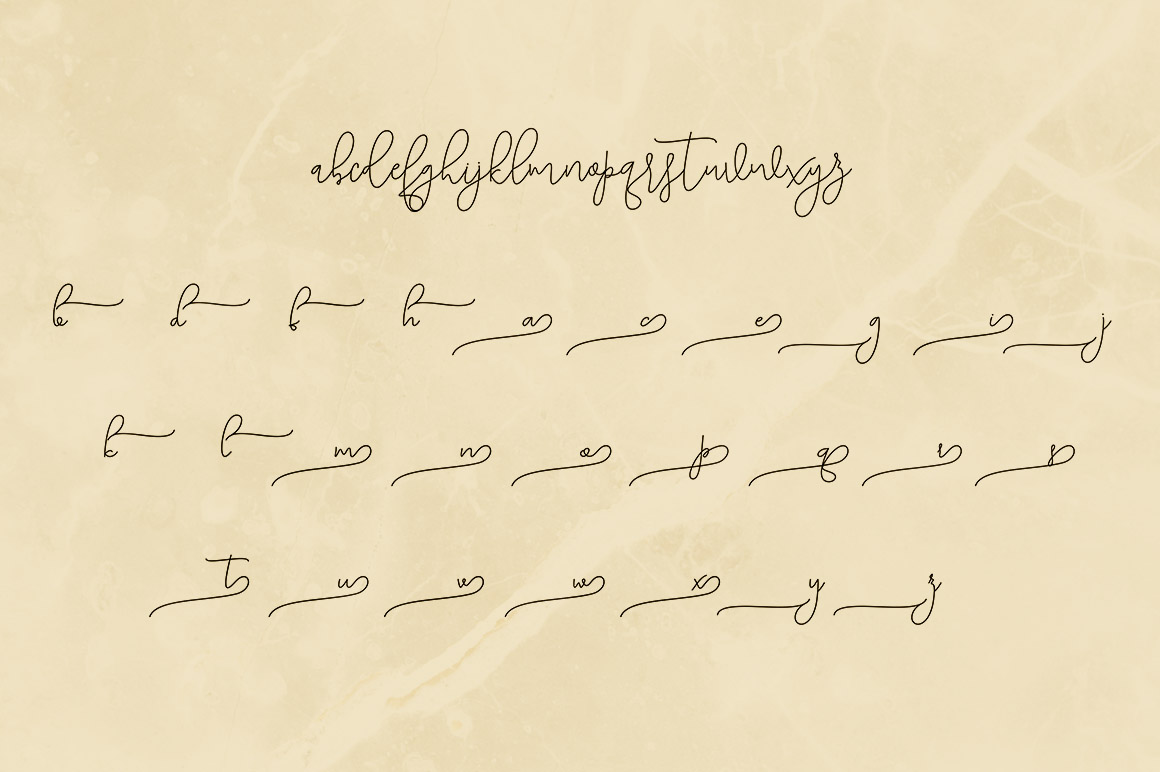 abcdefghijklmnopqrstuvwxyz
b d f h a c e g i j
k l m n o p q r s
t u v w x y z